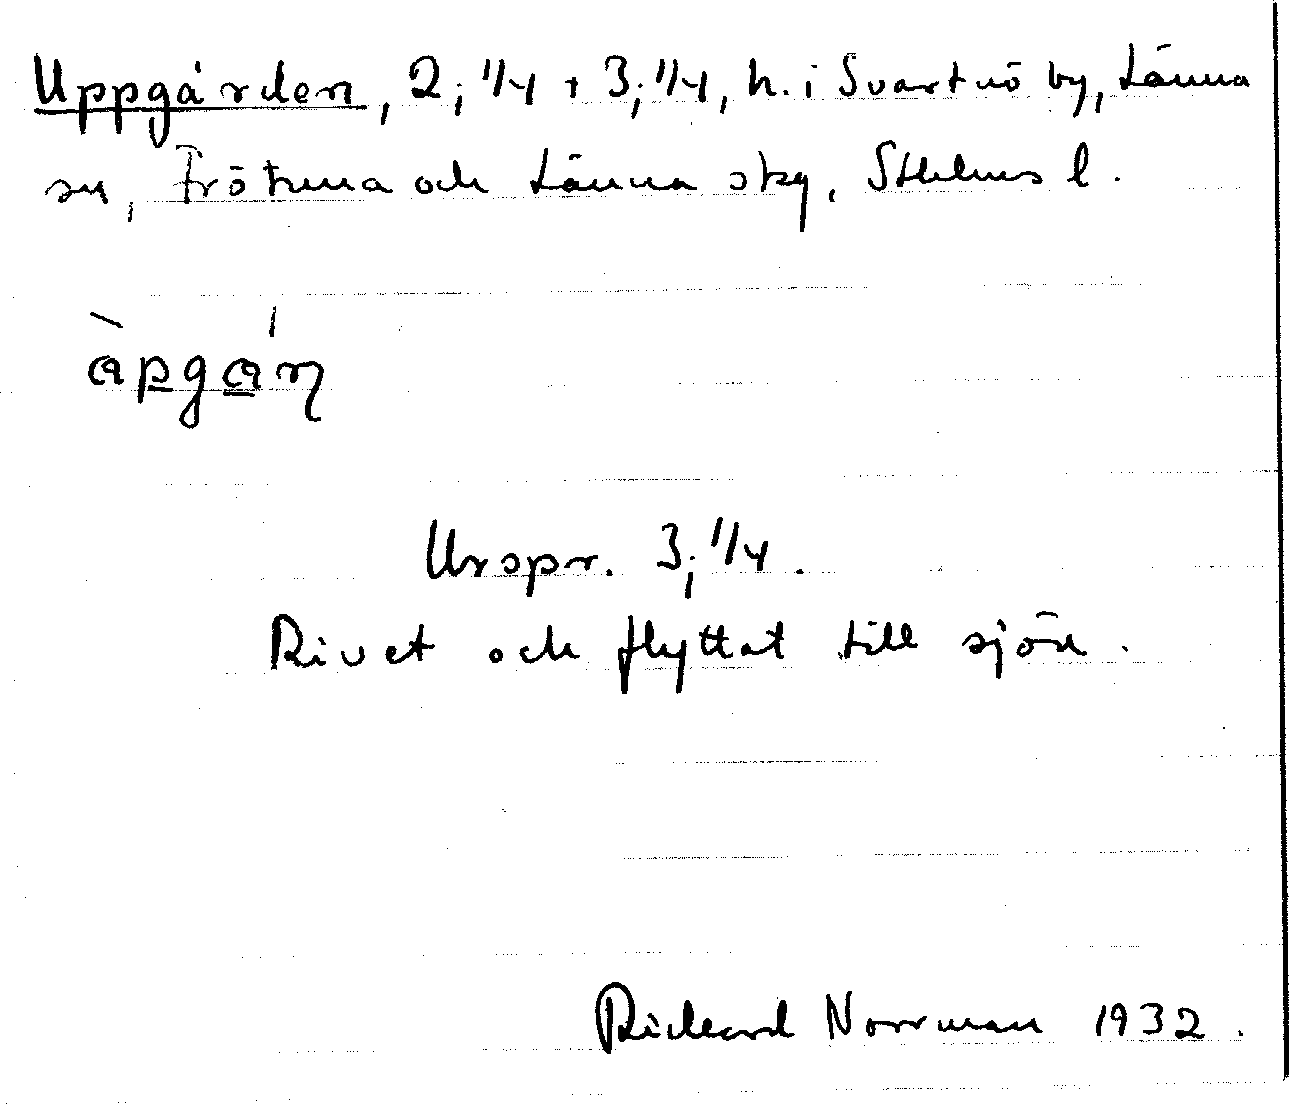 Uppgården, 2;1/4 + 3;1/4, h. i Svartnö by, Länna
sn, Frötuna och Länna skg, Sthlms l.
àpgán
Urspr. 3;1/4.
Rivet och flyttat till sjön.
Rickard Norrman 1932.